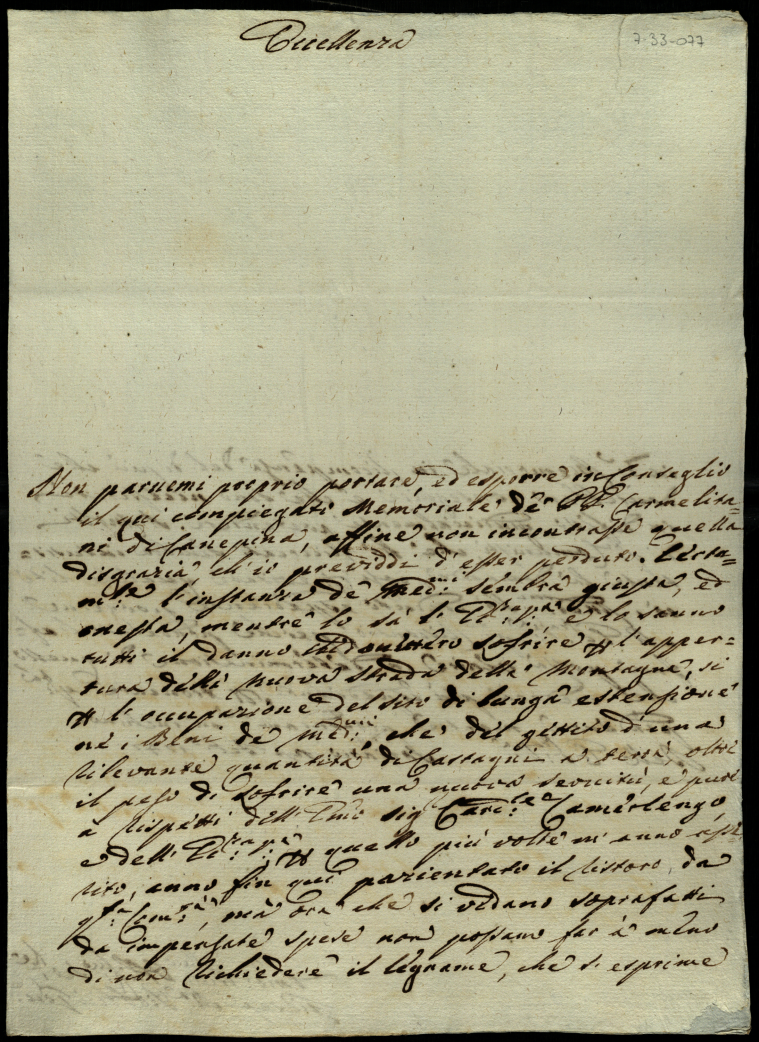 Eccellenza
7-33-077
Non paruemi proprio portare, ed esporre in Conseglio
il qui compiegato Memoriale de PP. Carmelita=
ni di Canepina, affine non incontrasse quella
disgrazia, ch'io previddi d'esser perduto.
l'instanza de med:mi sembra giusta, ed
onesta, mentre lo sà l'E: e lo sanno
tutti il danno sofrire l'apper=
tura della nuova strada della Montagna, si
l'occupazione del sito di lunga estensione
ne i Beni de med:mi che del gettito d'una
rilevante quantità di Castagni a terra, oltre
il peso di sofrire una nuova servitù, e pure
a rispetti dell' Emo Sig Card:le Camerlengo,
e dell' E: quello più volte m'anno
rito, anno fin qui pazientato il ristoro da
Com:tà, mà ora che si vedano soprafatti
da impensate spese non possano far à meno
di non richiedere il legname, che si esprime